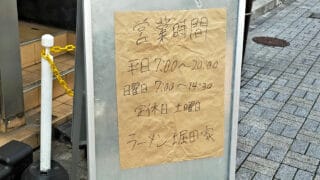 営業時間
平日 7:00〜20:00
日曜日 7:00〜14:30
定休日 土曜日
ラーメン 堀田家